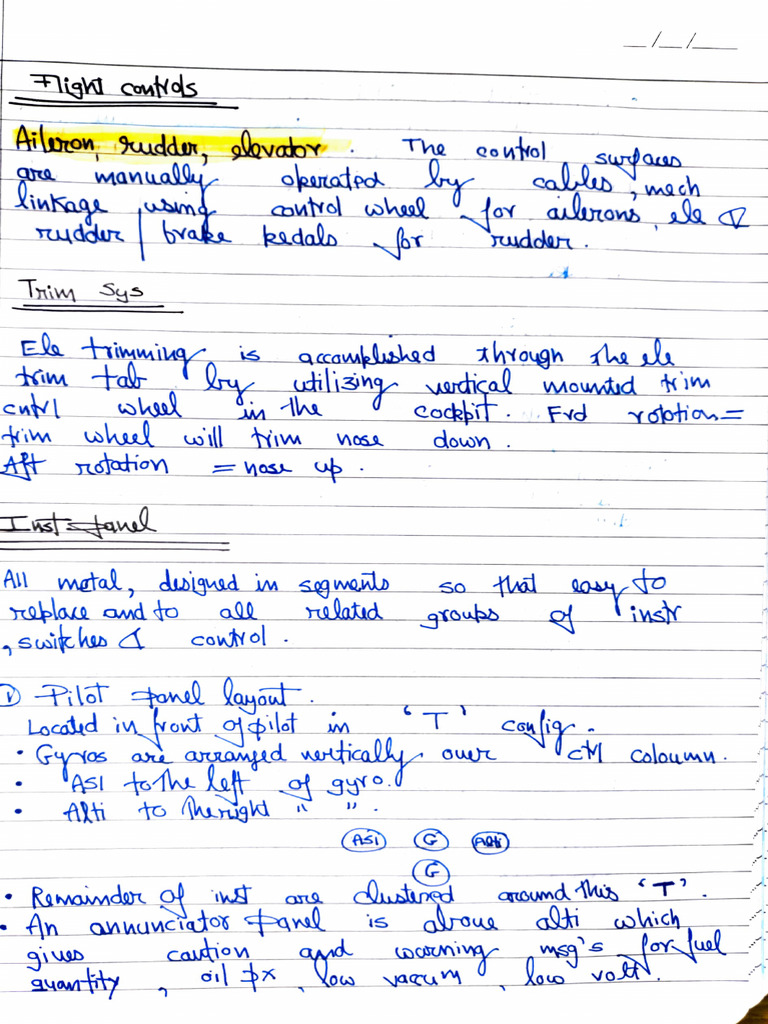 __/__/____
Flight controls
Aileron, rudder, elevator. The control surfaces
are manually operated by cables, mech
linkage using control wheel for ailerons, ele &
rudder / brake pedals for rudder.
Trim Sys
Ele trimming is accomplished through the ele
trim tab by utilizing vertical mounted trim
cntrl wheel in the cockpit. Frd rotation =
trim wheel will trim nose down.
Aft rotation = nose up.
Inst panel
All metal, designed in segments so that easy to
replace and to all related groups of instr
, switches & control.
1) Pilot panel layout.
Located in front of pilot in 'T' config.
• Gyros are arranged vertically over coloumn.
• ASI to the left of gyro.
• Alti to the right " ".
ASI G Alti
G
• Remainder of inst are clustered around this 'T'.
• An annunciator panel is above alti which
gives caution and warning msg's for fuel
quantity, oil px, low vaccum, low volt.